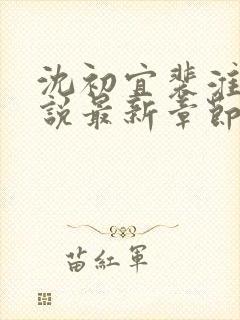 沈初宜裴淮
說最新章節
苗紅軍